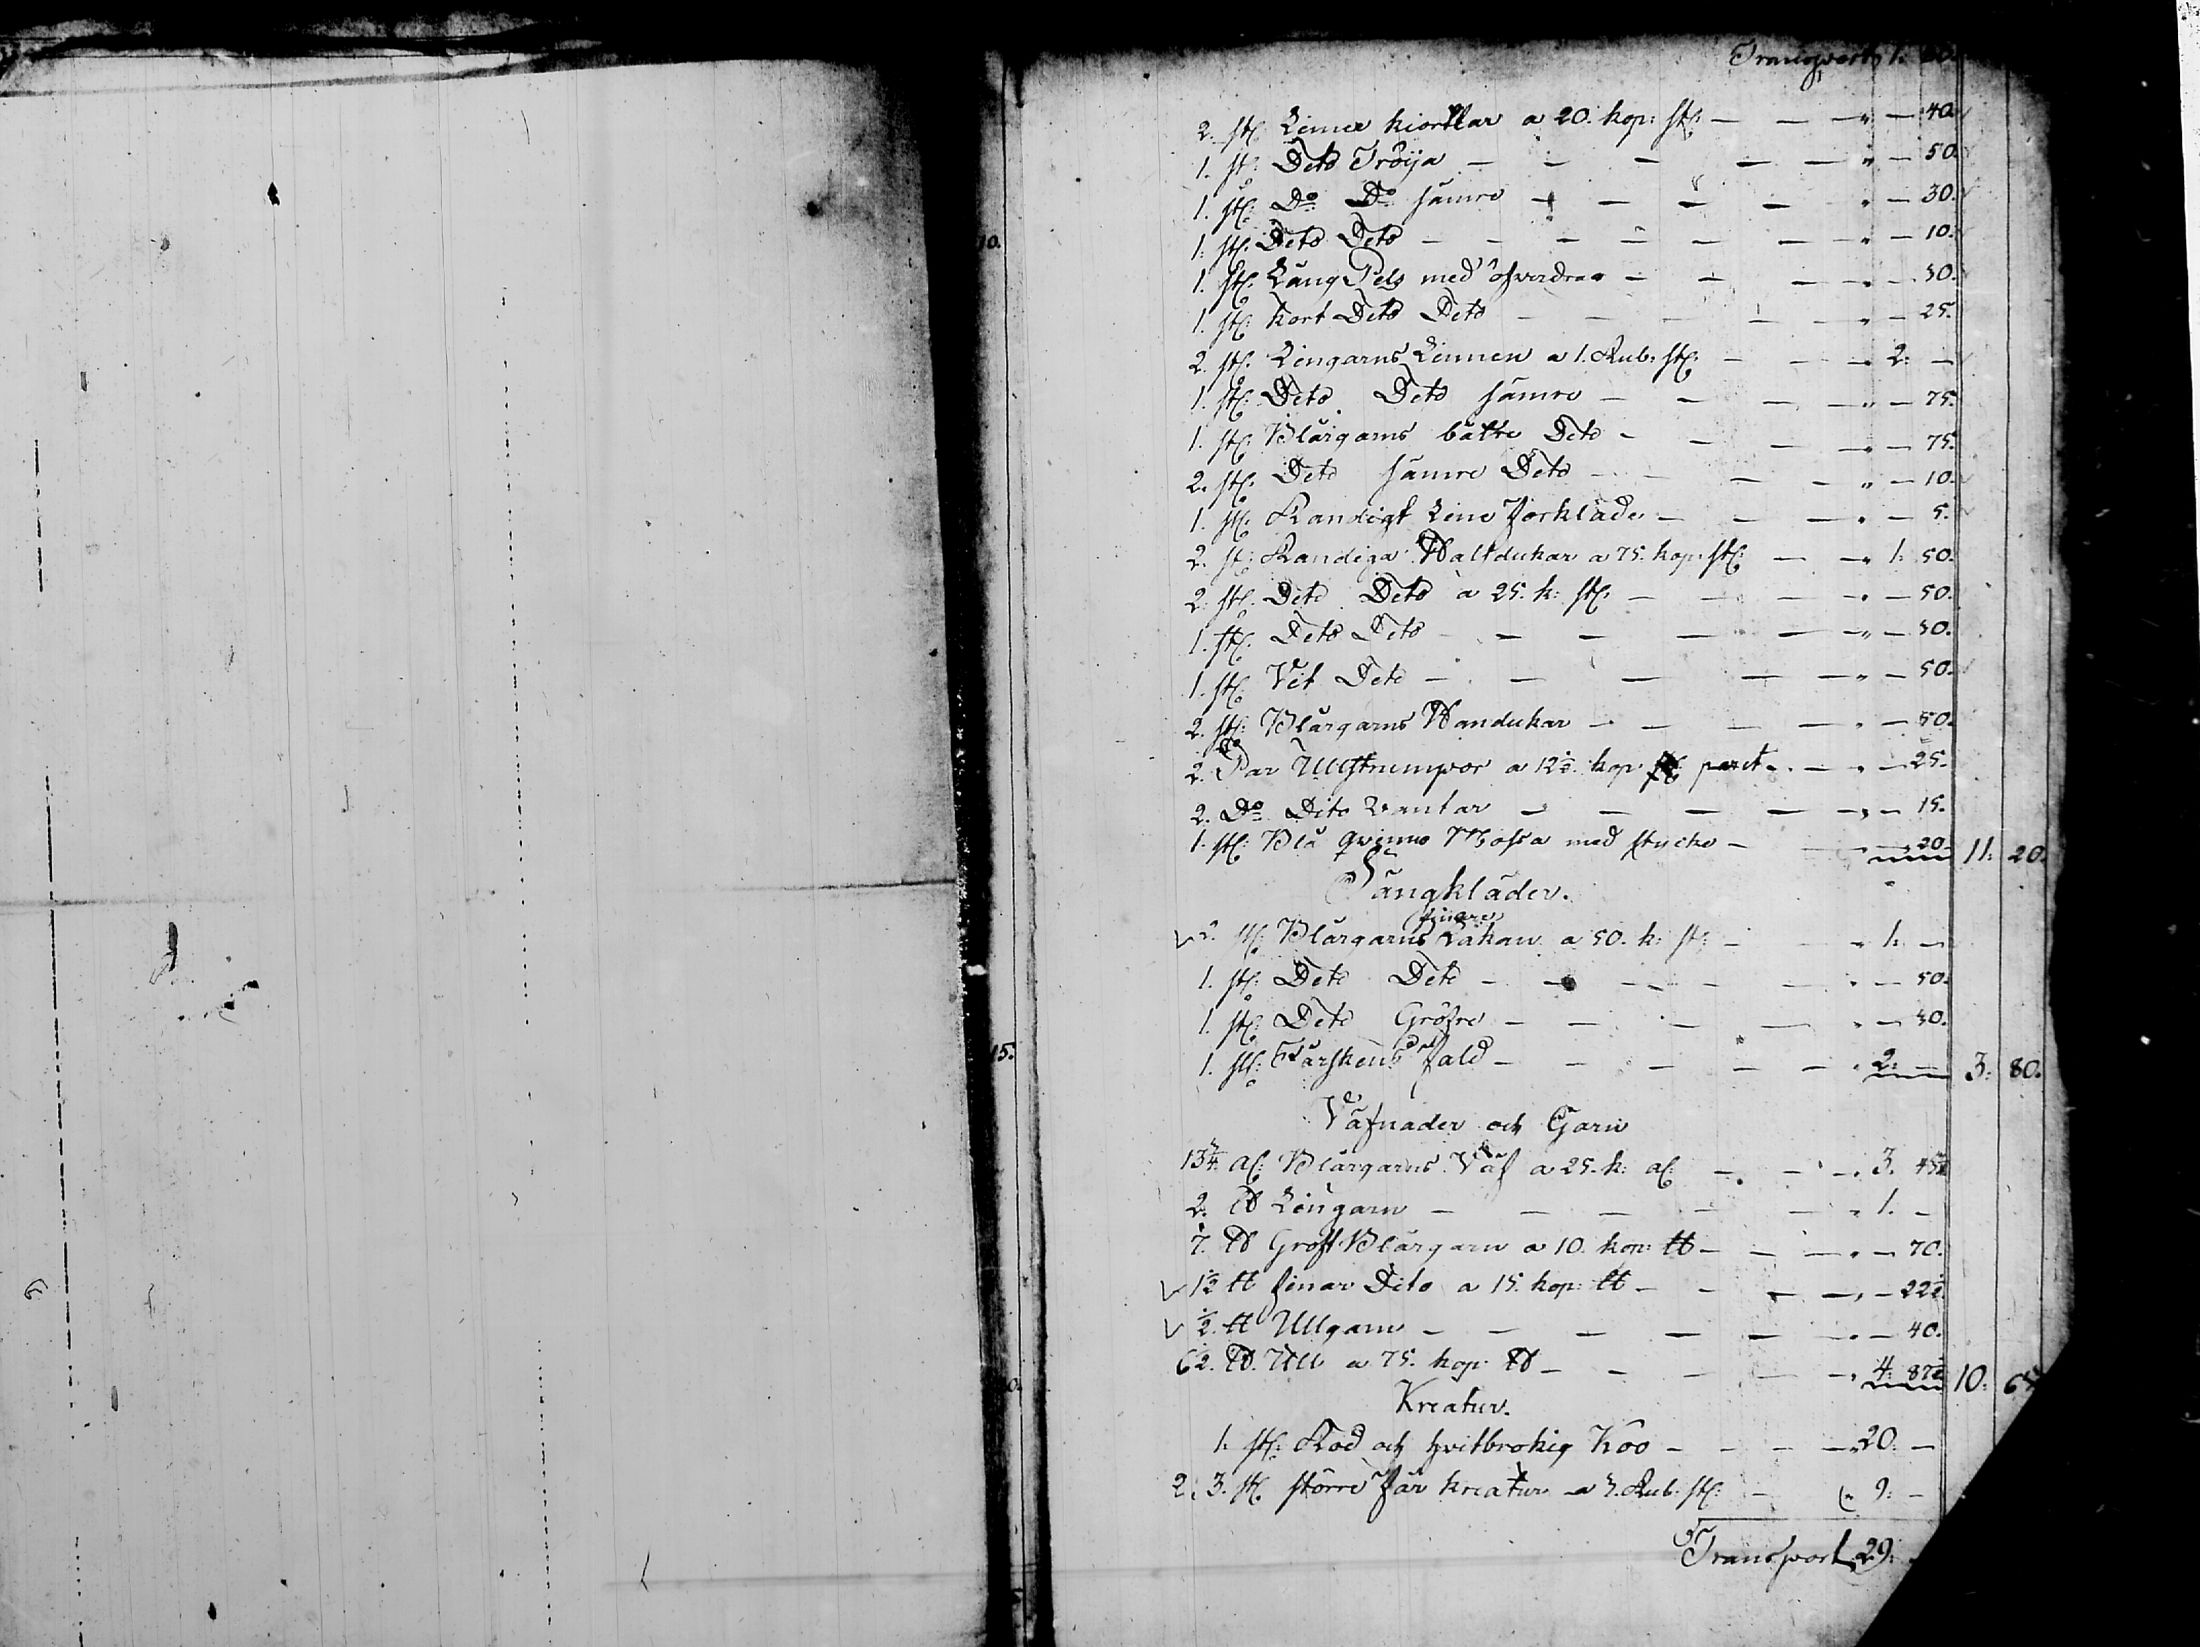 Transport 1:
2. st: Linne kiortlar a 20. kop: st: — — — " — 40.
1. st: Deto Tröija — — — — — " — 50.
1. st: Do Do sämre — — — — " — 30.
1. st: Deto Deto — — — — — — " — 10.
1. st: Lång Pels med öfverdrag — — — " — 50.
1. st: kort Deto Deto — — — — — " — 25.
2. st: Lingarns Linnen a 1. Rub: st: — — — " 2: —
1. st: Deto Deto sämre — — — — " — 75.
1. st: Blårgarns bättre Deto — — — — " — 75.
2. st: Deto sämre Deto — — — — " — 10.
1. st: Randigt Line förkläde — — — " — 5.
2. st: Randiga Halsdukar a 75. kop: st: — — " 1: 50.
2. st: Deto Deto a 25. k: st: — — — — " — 50.
1. st: Deto Deto — — — — — " — 30.
1. st: Vit Deto — — — — — " — 50.
2. st: Blårgarns Handukar — — — — " — 50.
2. Par Ullstrumpor a 12½ kop: paret — — " — 25.
2. Do Dito Vantar — — — — — " — 15.
1. st: Blå qvinno Mössa med stycke — — " — 20. 11: 20.
Sängkläder.
finare
2. st: Blårgarns Lakan a 50. k: st: — — " 1: —
1. st: Deto Deto — — — — — " — 50.
1. st: Deto Gröfre — — — — " — 30.
1. st: Fårskens Fäld — — — — — " 2: — 3: 80.
Väfnader och Garn
13¾ al: Blårgarns Väf a 25. k: al: — — — " 3.
2. ℔ Lingarn — — — — — " 1. —
7. ℔ Groft Blårgarn a 10. kop: ℔ — — — " — 70.
1½ ℔ finar Dito a 15. kop: ℔ — — — — " — 22½
½ ℔ Ullgarn — — — — — — " — 40.
6½ ℔ Ull a 75. kop: ℔ — — — — — " 4: 87½ 10:
Kreatur.
1. st: Röd och hvitbrokig Koo — — — — " 20: —
2. 3. st: större Får kreatur a 3. Rub: st: — " 9: —
Transport 29: